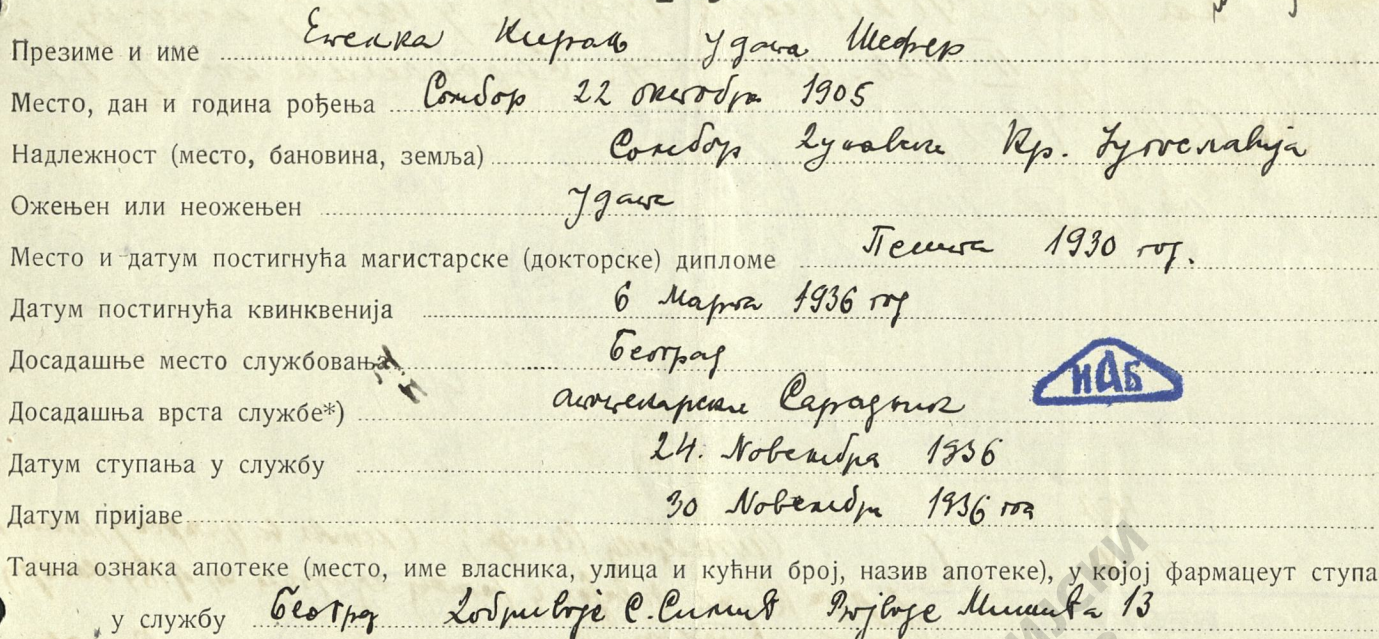 Презиме и име Етелка Кираљ удата Шефер
Место, дан и година рођења Сомбор 22 октобра 1905
Надлежност (место, бановина, земља) Сомбор Дунавска Кр. Југославија
Ожењен или неожењен Удата
Место и датум постигнућа магистарске (докторске) дипломе Пешта 1930 год.
Датум постигнућа квинквенија 6 Марта 1936 год
Досадашње место службовања Београд
ИАБ
Досадашња врста службе*) апотекарски Сарадник
Датум ступања у службу 24. Новембра 1936
Датум пријаве 30 Новембра 1936 год
Тачна ознака апотеке (место, име власника, улица и кућни број, назив апотеке), у којој фармацеут ступа
у службу Београд Добривоје С. Симић Војводе Мишића 13